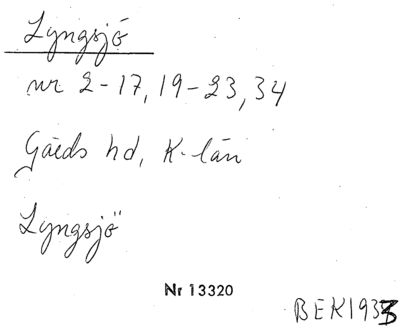 Lyngsjö
nr 2-17, 19-23, 34
Gärds hd, K-län
Lyngsjö
Nr 13320